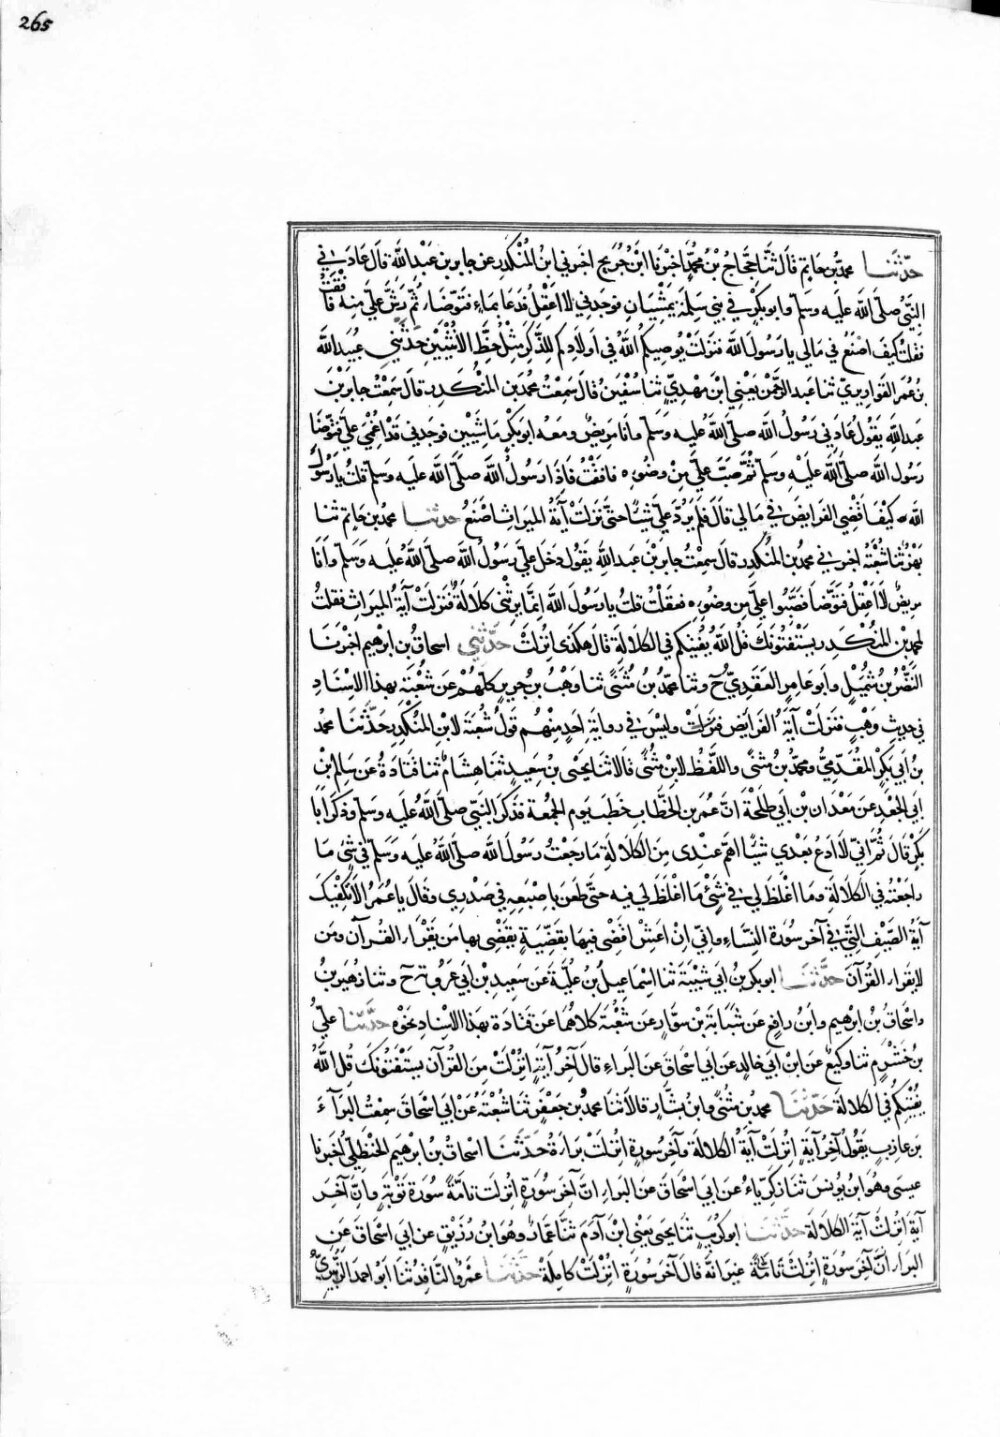 265
حدثنا محمد بن حاتم قال ثنا حجاج بن محمد اخبرنا ابن جريج اخبرني ابن المنكدر عن جابر بن عبد الله قال عادني
النبي صلى الله عليه وسلم وابو بكر في بني سلمة يمشيان فوجدني لا اعقل فدعا بماء فتوضا ثم رش علي منه فافقت
فقلت كيف اصنع في مالي يا رسول الله فنزلت يوصيكم الله في اولادكم للذكر مثل حظ الانثيين حدثني عبيد الله
بن عمر القواريري ثنا عبد الرحمن يعني ابن مهدي ثنا سفين قال سمعت محمد بن المنكدر قال سمعت جابر بن
عبد الله يقول عادني رسول الله صلى الله عليه وسلم وانا مريض ومعه ابو بكر ماشيين فوجدني قد اغمي علي فتوضا
رسول الله صلى الله عليه وسلم ثم صب علي من وضوءه فافقت فاذا رسول الله صلى الله عليه وسلم قلت يا رسول
الله كيف اقضي الفرايض في مالي قال فلم يرد علي شيئا حتى نزلت آية الميراث اصنع حدثنا محمد بن حاتم ثنا
بهز ثنا شعبة اخبرني محمد بن المنكدر قال سمعت جابر بن عبد الله يقول دخل علي رسول الله صلى الله عليه وسلم وانا
مريض لا اعقل فتوضا فصبوا علي من وضوءه فعقلت قلت يا رسول الله انما يرثني كلالة فنزلت آية الميراث فقلت
لمحمد بن المنكدر يستفتونك قل الله يفتيكم في الكلالة قال هكذى انزلت حدثني اسحاق بن ابرهيم اخبرنا
النضر بن شميل وابو عامر العقدي ح وثنا محمد بن مثنى ثنا وهب بن جرير كلهم عن شعبة بهذا الاسناد
في حديث وهب فنزلت آية الفرايض فنزلت وليس في رواية احد منهم قول شعبة لابن المنكدر حدثنا محمد
بن ابي بكر المقدمي ومحمد بن مثنى واللفظ لابن مثنى قالا ثنا يحيى بن سعيد ثنا هشام ثنا قتادة عن سالم بن
ابي الجعد عن معدان بن ابي طلحة ان عمر بن الخطاب خطب يوم الجمعة فذكر النبي صلى الله عليه وسلم وذكر ابا
بكر قال ثم اني لا ادع بعدي شيئا اهم عندي من الكلالة ما رجعت رسول الله صلى الله عليه وسلم في شي ما
راجعته في الكلالة وما اغلظ لي في شئ ما اغلظ لي فيه حتى طعن باصبعه في صدري وقال يا عمر الا تكفيك
آية الصيف التي في آخر سورة النساء واني ان اعش اقضي فيها بقضية يقضي بها من يقرا القرآن ومن
لا يقرا القرآن حدثنا ابو بكر بن ابي شيبة ثنا اسماعيل بن علية عن سعيد بن ابي عروبة ح وثنا زهير بن
واسحاق بن ابرهيم وابن رافع عن شبابة بن سوار عن شعبة كلاهما عن قتادة بهذا الاسناد نحوه حدثنا علي
بن خشرم ثنا وكيع عن ابن ابي خالد عن ابي اسحاق عن البراء قال آخر آية انزلت من القرآن يستفتونك قل الله
يفتيكم في الكلالة حدثنا محمد بن مثنى وابن بشار قالا ثنا محمد بن جعفر ثنا شعبة عن ابي اسحاق سمعت البرآء
بن عازب يقول آخر آية انزلت آية الكلالة وآخر سورة انزلت براءة حدثنا اسحاق بن ابرهيم الحنظلي اخبرنا
عيسى وهو ابن يونس ثنا زكرياء عن ابي اسحاق عن البراء ان آخر سورة انزلت تامة سورة توبة وان آخر
آية انزلت آية الكلالة حدثنا ابو كريب ثنا يحيى يعني ابن آدم ثنا عمار وهو ابن رزيق عن ابي اسحاق عن
البراء ان آخر سورة انزلت تامة غير انه قال آخر سورة انزلت كاملة حدثنا عمرو الناقد ثنا ابو احمد الزبيري